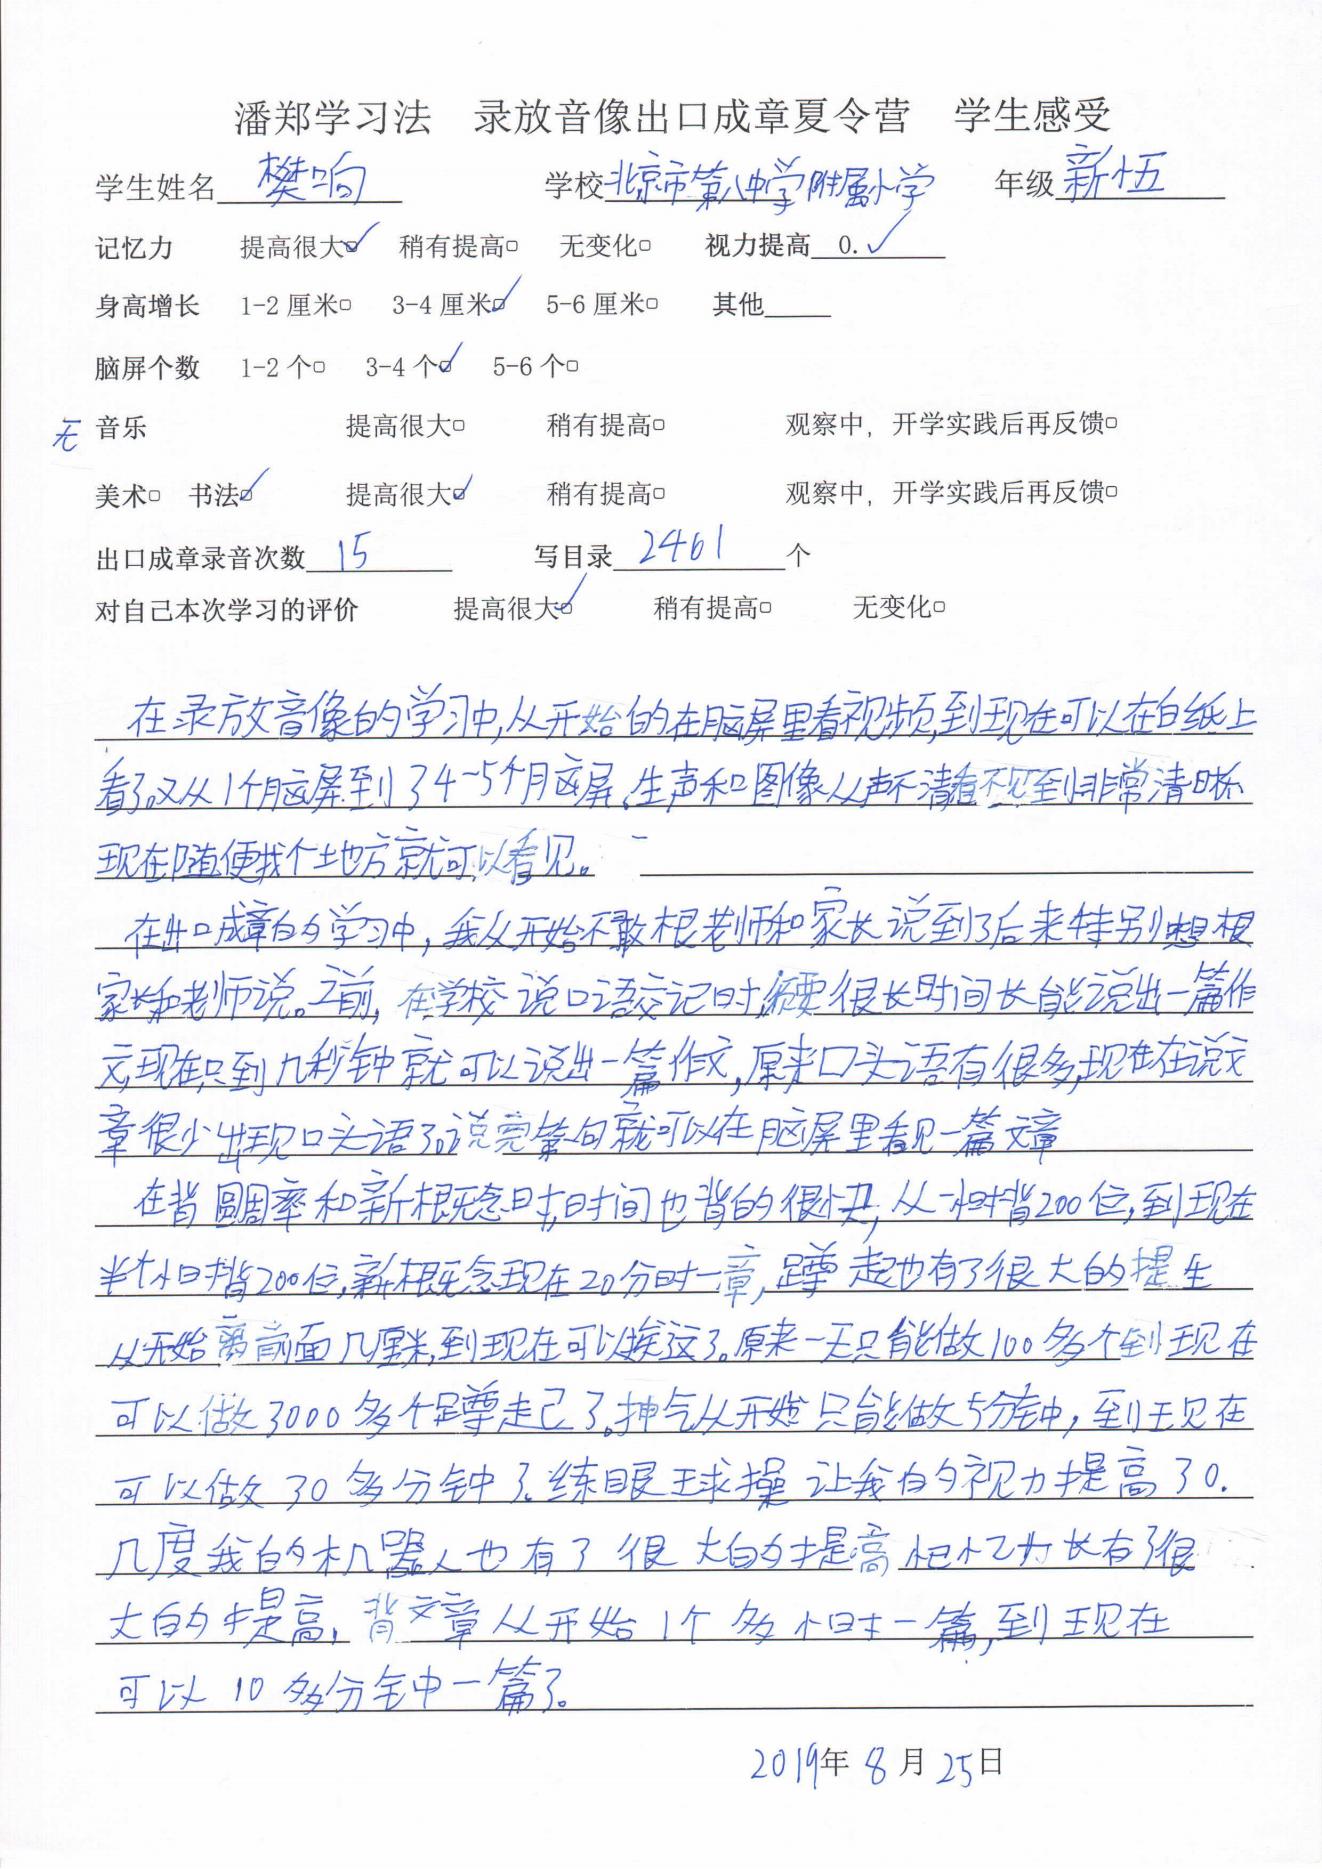 潘郑学习法 录放音像出口成章夏令营 学生感受
学生姓名 樊响 学校 北京市第八中学附属小学 年级 新小五
记忆力 提高很大☑ 稍有提高□ 无变化□ 视力提高 0.✓
身高增长 1-2厘米□ 3-4厘米☑ 5-6厘米□ 其他
脑屏个数 1-2个□ 3-4个☑ 5-6个□
无 音乐 提高很大□ 稍有提高□ 观察中，开学实践后再反馈□
美术□ 书法☑ 提高很大☑ 稍有提高□ 观察中，开学实践后再反馈□
出口成章录音次数 15 写目录 2461 个
对自己本次学习的评价 提高很大☑ 稍有提高□ 无变化□
在录放音像的学习中,从开始的在脑屏里看视频,到现在可以在白纸上
看了。又从1个脑屏到了4~5个脑屏。生声和图像从声不清看不见到非常清晰
现在随便找个地方就可以看见。
在出口成章的学习中，我从开始不敢根老师和家长说到了后来特别想根
家长和老师说。之前，在学校说口语交记时,须要很长时间长能说出一篇作
文,现在只到几秒钟就可以说出一篇作文,原来口头语有很多,现在在说文
章很少出现口头语了。说完第一句就可以在脑屏里看见一篇文章
在背圆周率和新概念时,时间也背的很快，从一小时背200位,到现在
半个小时背200位,新概念现在20分时一章,蹲起也有了很大的提生
从开始离前面几厘米,到现在可以挨这了。原来一天只能做100多个到现在
可以做3000多个蹲起了。抻气从开始只能做5分钟，到现在
可以做30多分钟了。练眼球操让我的视力提高了0.
几度我的机器人也有了很大的提高记忆力长有了很
大的提高，背文章从开始1个多小时一篇,到现在
可以10多分钟一篇了。
2019年8月25日